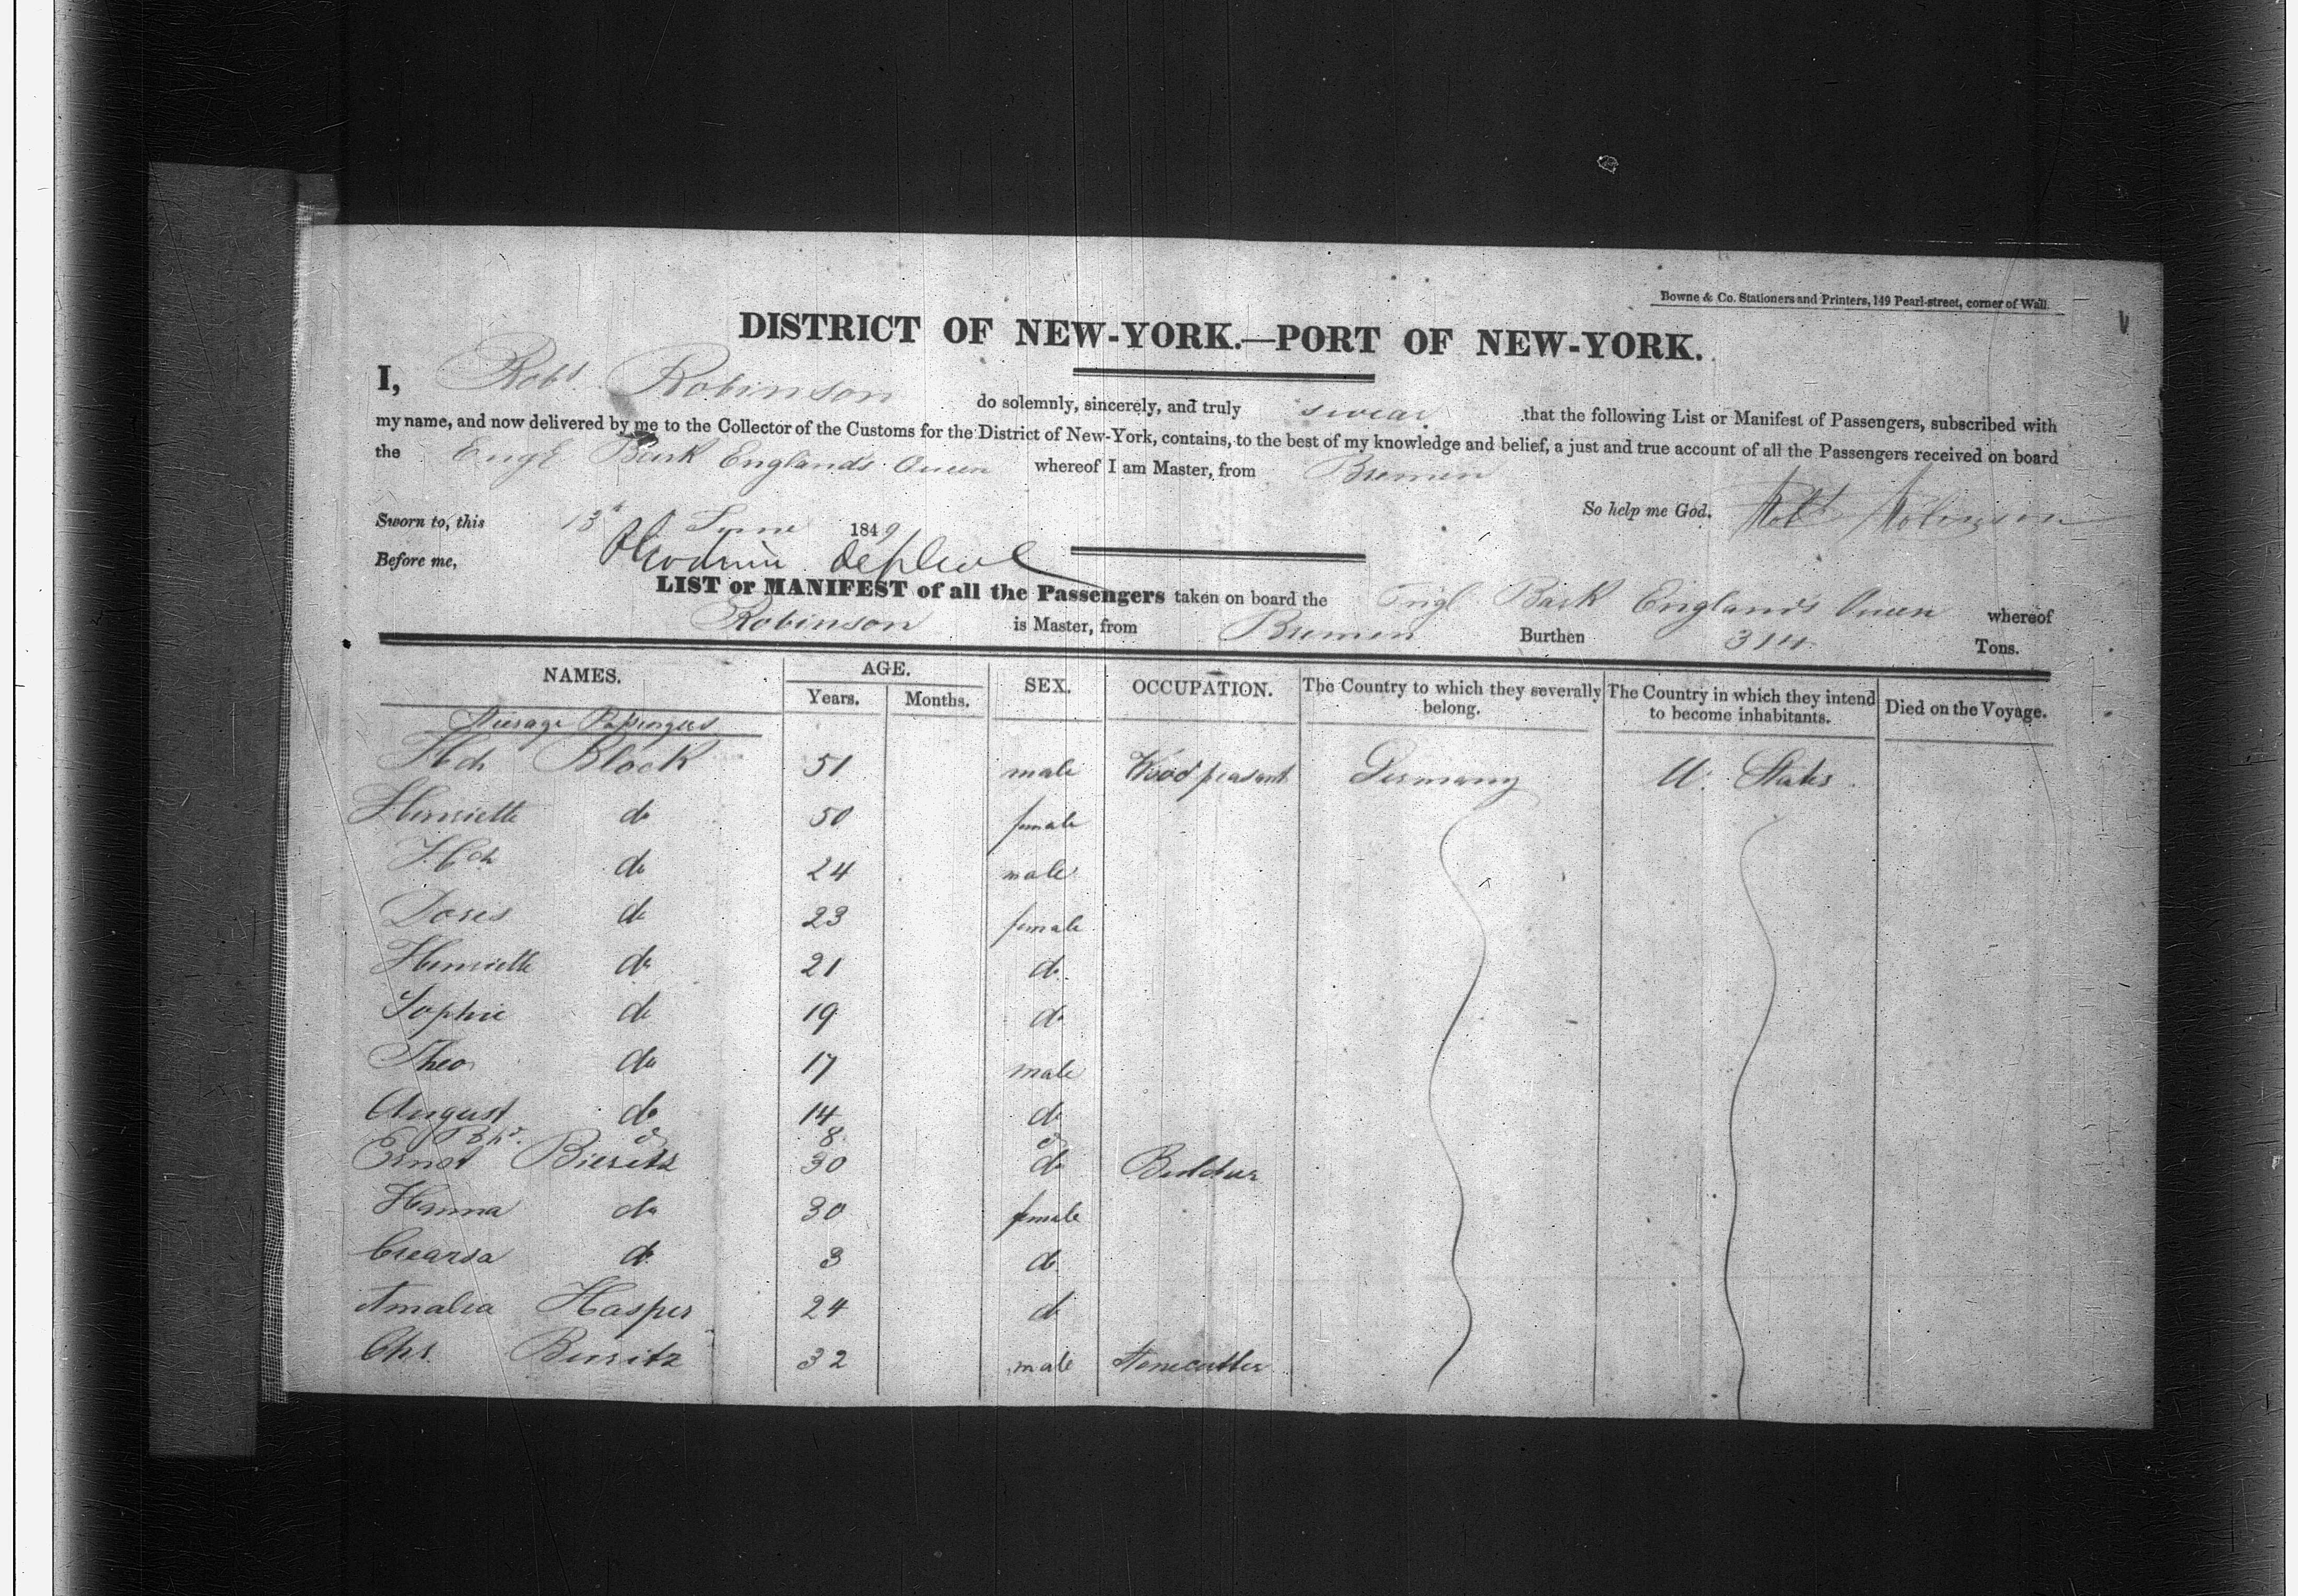 Bowne & Co. Stationers and Printers, 149 Pearl-street, corner of Wall.
DISTRICT OF NEW-YORK.—PORT OF NEW-YORK.
I, Robt Robinson do solemnly, sincerely, and truly swear that the following List or Manifest of Passengers, subscribed with
my name, and now delivered by me to the Collector of the Customs for the District of New-York, contains, to the best of my knowledge and belief, a just and true account of all the Passengers received on board
the Engl Bark England's Queen whereof I am Master, from Bremen
So help me God. Robt Robinson
Sworn to, this 13th June 1849
Before me,
LIST or MANIFEST of all the Passengers taken on board the Engl Bark England's Queen whereof
Robinson is Master, from Bremen Burthen 314 Tons.
NAMES. AGE. Years. Months. SEX. OCCUPATION. The Country to which they severally belong. The Country in which they intend to become inhabitants. Died on the Voyage.
Steerage Passengers
Hch Block 51 male peasant Germany U. States
Henriette do 50 female
Hch do 24 male
Dores do 23 female
Henriette do 21 do
Sophie do 19 do
Theo do 17 male
August do 14 do
do 8 do
Ernst Bieritz 30 do
Hanna do 30 female
do 3 do
Amalia Hasper 24 do
Chs. Bieritz 32 male Stonecutter